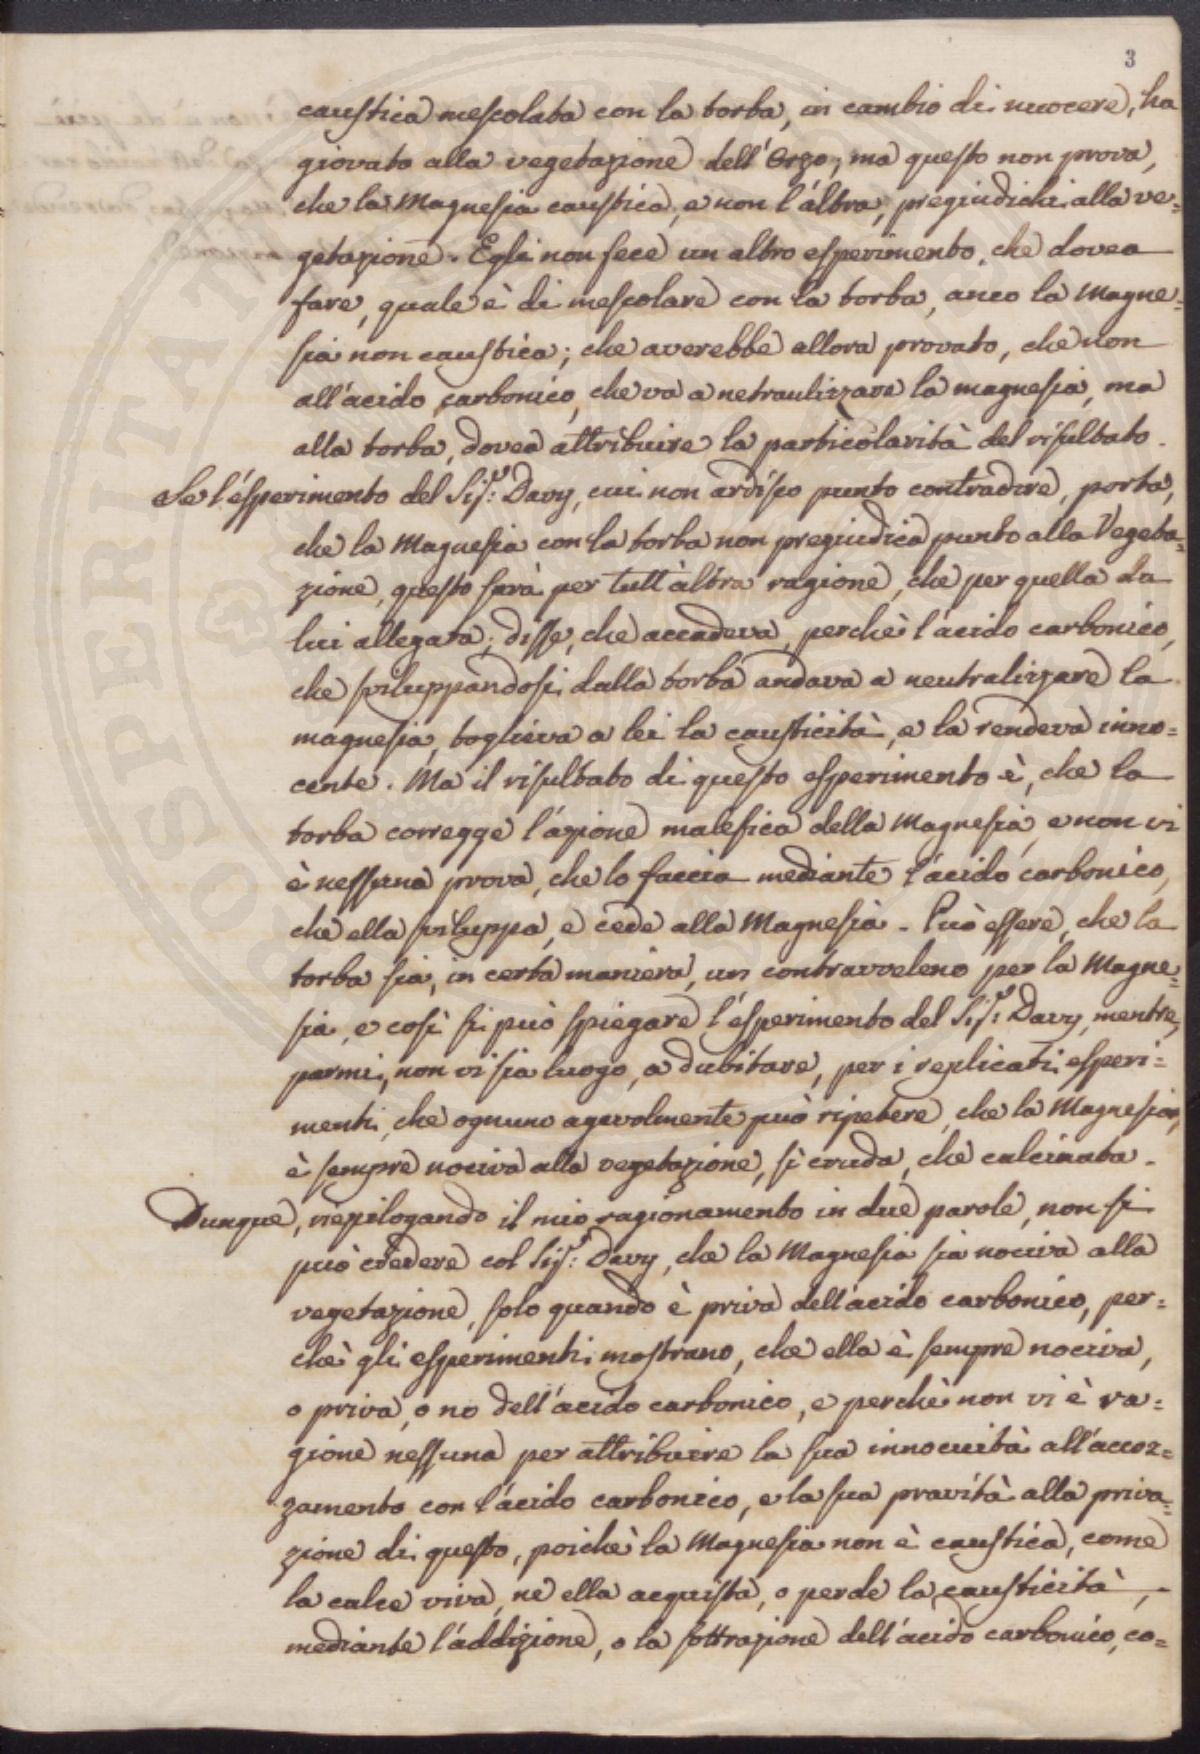 3
caustica mescolata con la torba, in cambio di nuocere, ha
giovato alla vegetazione dell'Orzo; ma questo non prova,
che la Magnesia caustica, e non l'altra, pregiudichi alla ve=
getazione. Egli non fece un altro esperimento, che dovea
fare, quale è di mescolare con la torba, anco la Magne=
sia non caustica; che averebbe allora provato, che non
all'acido carbonico, che va a netraulizzare la magnesia, ma
alla torba, dovea attribuire la particolarità del risultato.
Se l'esperimento del Sig.r: Davy, cui non ardisco punto contradire, porta,
che la Magnesia con la torba non pregiudica punto alla Vegeta=
zione, questo sarà per tutt'altra ragione, che per quella da
lui allegata; disse, che accadeva, perchè l'acido carbonico,
che sviluppandosi dalla torba andava a neutralizzare la
magnesia, toglieva a lei la causticità, e la rendeva inno=
cente. Ma il risultato di questo esperimento è, che la
torba corregge l'azione malefica della Magnesia, e non vi
è nessuna prova, che lo faccia mediante l'acido carbonico,
che ella sviluppa, e cede alla Magnesia. Può essere, che la
torba sia, in certa maniera, un contravveleno per la Magne=
sia, e così si può spiegare l'esperimento del Sig.r: Davy, mentre,
parmi, non vi sia luogo, a dubitare, per i replicati esperi=
menti, che ognuno agevolmente può ripetere, che la Magnesia,
è sempre nociva alla vegetazione, sì cruda, che calcinata.
Dunque, riepilogando il mio ragionamento in due parole, non si
può credere col Sig.r: Davy, che la Magnesia sia nociva alla
vegetazione, solo quando è priva dell'acido carbonico, per=
chè gli esperimenti mostrano, che ella è sempre nociva,
o priva, o no dell'acido carbonico, e perchè non vi è ra=
gione nessuna per attribuire la sua innocuità all'accoz=
zamento con l'acido carbonico, e la sua pravità alla priva=
zione di questo, poichè la Magnesia non è caustica, come
la calce viva, nè ella acquista, o perde la causticità,
mediante l'addizione, o la sottrazione dell'acido carbonico, co=
PROSPERITATI